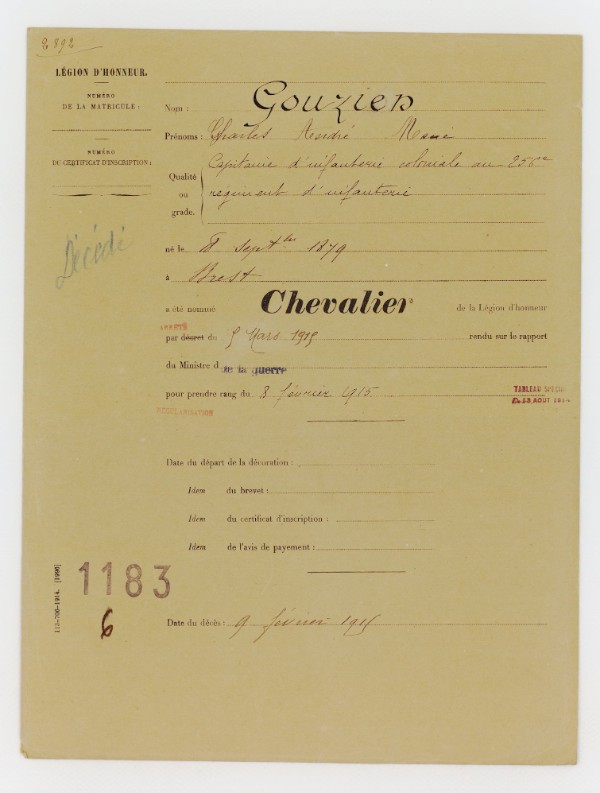 2892
LÉGION D'HONNEUR.
NUMÉRO
DE LA MATRICULE :
NUMÉRO
DU CERTIFICAT D'INSCRIPTION :
Décédé
Nom : Gouzien
Prénoms : Charles André Marie
Qualité ou grade. Capitaine d'infanterie coloniale au 256e
régiment d'infanterie
né le 8 septbre 1879
à Brest
a été nommé Chevalier de la Légion d'honneur
ARRÊTÉ
par décret du 5 Mars 1915 rendu sur le rapport
du Ministre d de la guerre
pour prendre rang du 8 février 1915
TABLEAU SPECIAL
13 AOUT 1914
RÉGULARISATION
Date du départ de la décoration :
Idem du brevet :
Idem du certificat d'inscription :
Idem de l'avis de payement :
1183
6
Date du décès : 9 février 1915